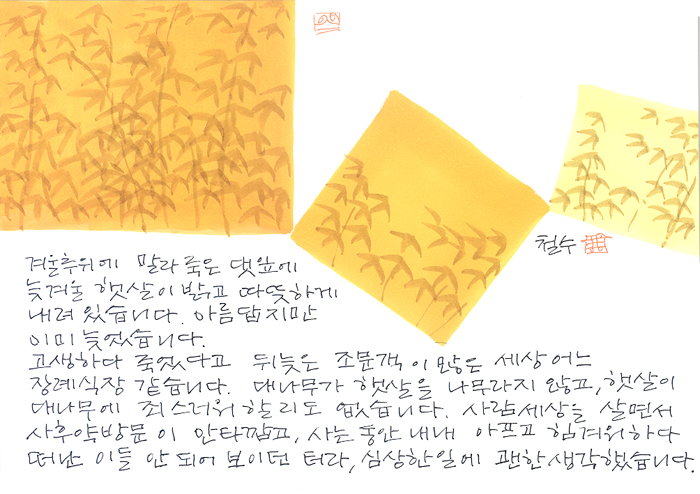 철수
겨울추위에 말라 죽은 댓잎에
늦겨울 햇살이 밝고 따뜻하게
내려 있습니다. 아름답지만
이미 늦었습니다.
고생하다 죽었다고 뒤늦은 조문객이 많은 세상 어느
장례식장 같습니다. 대나무가 햇살을 나무라지 않고, 햇살이
대나무에 죄스러워 할리도 없습니다. 사람세상을 살면서
사후약방문이 안타깝고, 사는 동안 내내 아프고 힘겨워하다
떠난 이들 안 되어 보이던 터라, 심상한 일에 괜한 생각했습니다.